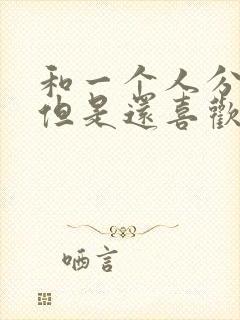 和一个人分
但是還喜歡
哂言